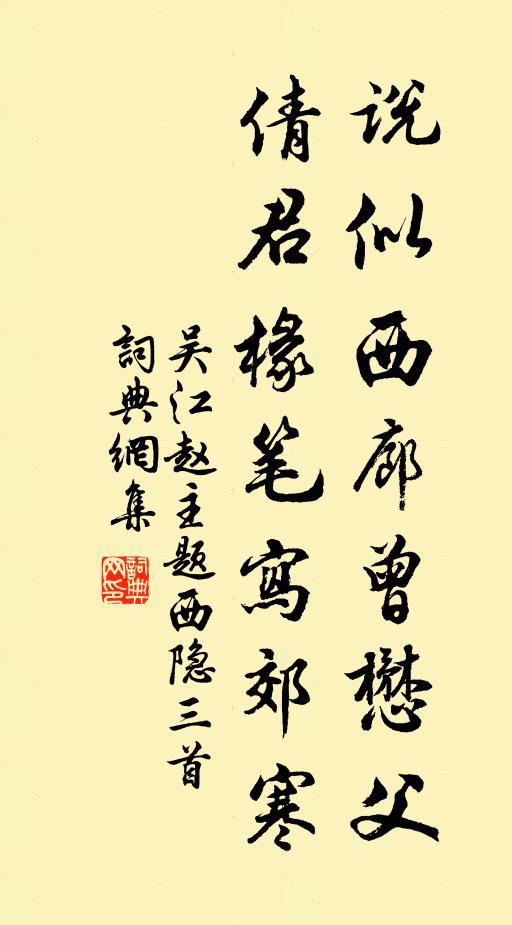 说似西廊曾懋父
倩君椽笔寫郊寒
吴江赵主题西隐三首
詞典網集
詞典網印